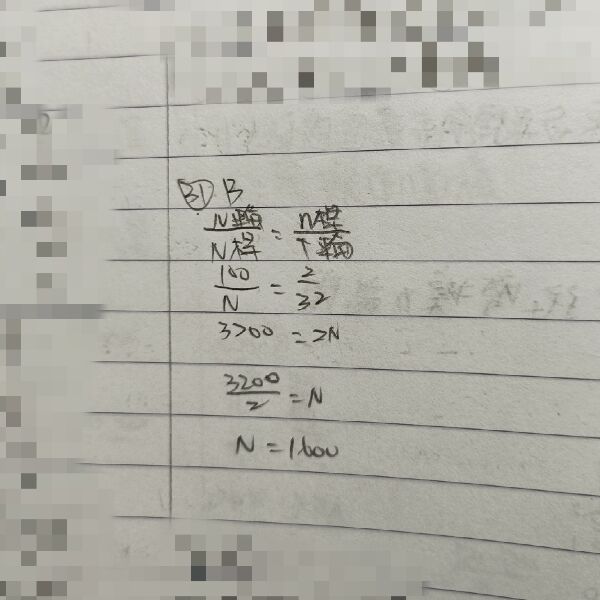 31 B
N蝸/N桿 = n桿/T蝸
100/N = 2/32
3200 = 2N
3200/2 = N
N = 1600